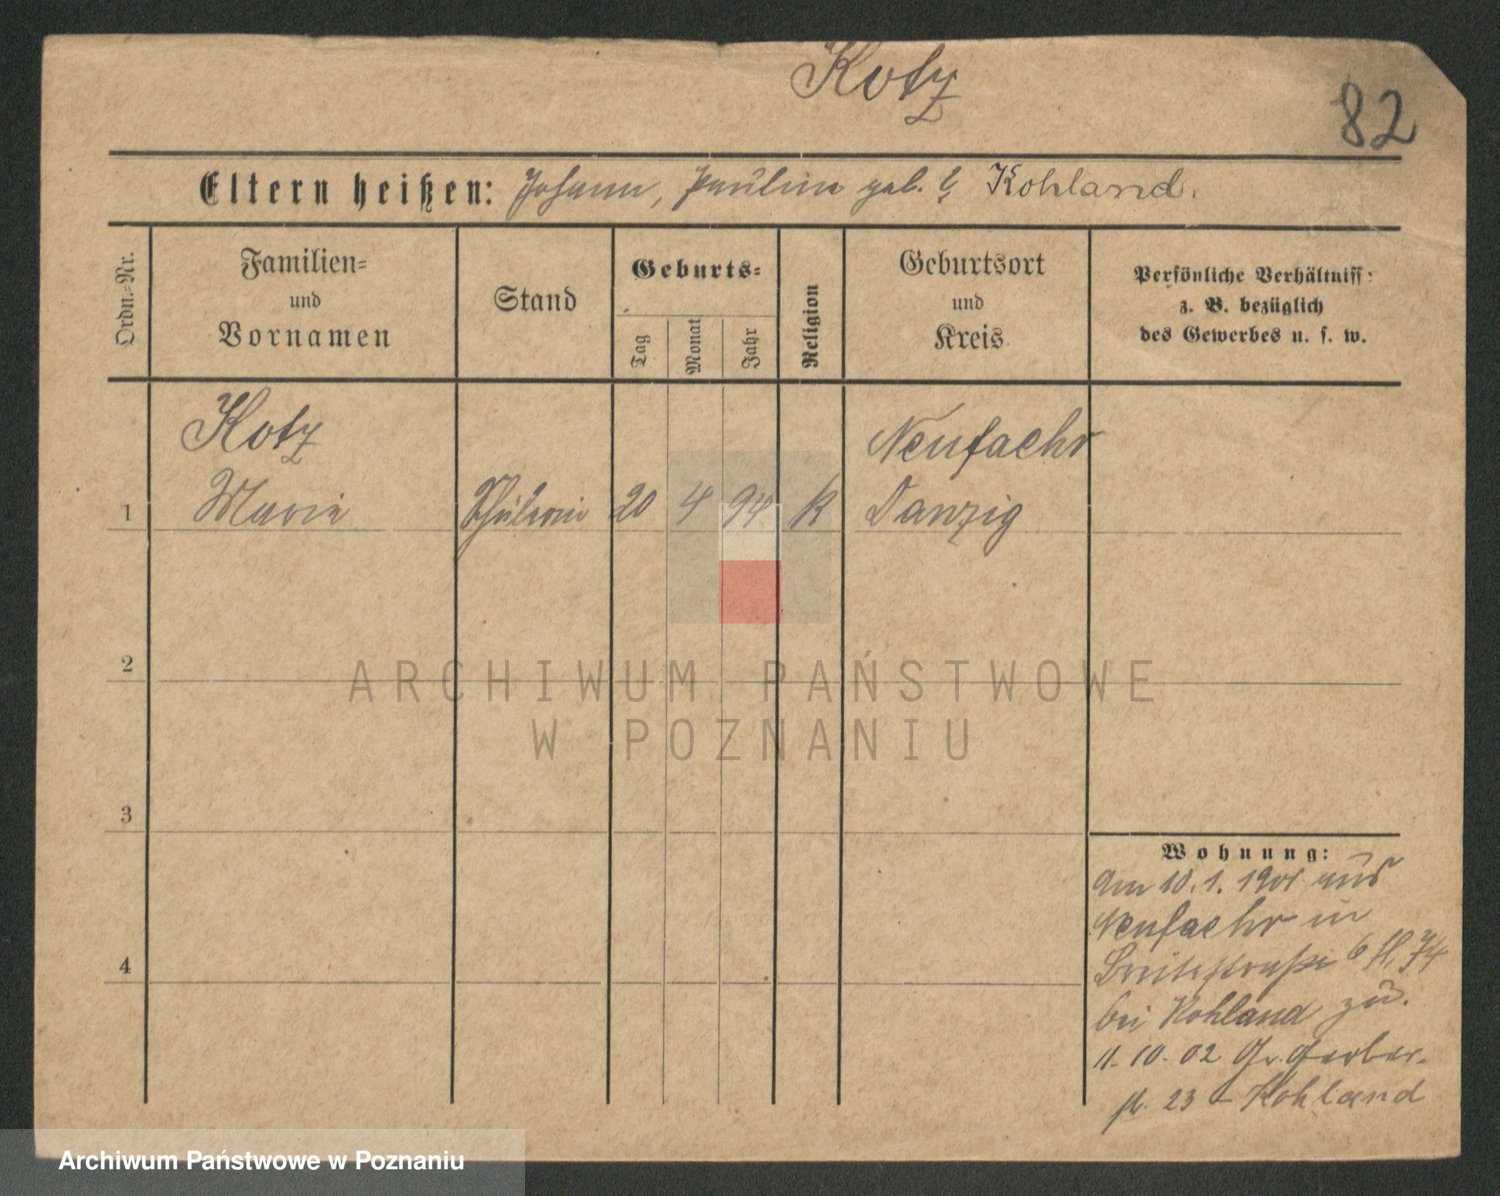 Kotz
82
Eltern heißen: Johann, Pauline geb. Kohland.
Ordn.-Nr.
Familien-
und
Vornamen
Stand
Geburts-
Tag
Monat
Jahr
Religion
Geburtsort
und
Kreis
Persönliche Verhältniss-
z. B. bezüglich
des Gewerbes u. s. w.
Kotz
Neufaehr
1 Marie Schülerin 20 4 94 K Danzig
2
ARCHIWUM PAŃSTWOWE
W POZNANIU
3
Wohnung:
Am 10.1.1901 aus
Neufaehr in
Breitestraße 6
bei Kohland zu.
11.10.02 Gr. Gerber-
str. 23 - Kohland
4
Archiwum Państwowe w Poznaniu